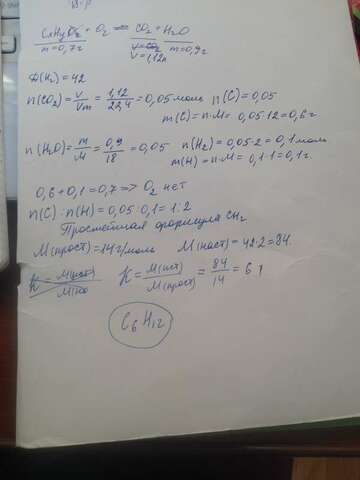 CxHyOz + O2 = CO2 + H2O
m=0,7г V=1,12л m=0,9г
D(H2) = 42
n(CO2) = V/Vm = 1,12/22,4 = 0,05 моль n(C) = 0,05
m(C) = n·M = 0,05·12 = 0,6 г
n(H2O) = m/M = 0,9/18 = 0,05 n(H2) = 0,05·2 = 0,1 моль
m(H) = n·M = 0,1·1 = 0,1 г.
0,6 + 0,1 = 0,7 => O2 нет
n(C) : n(H) = 0,05 : 0,1 = 1:2
Простейшая формула CH2
M(прост) = 14 г/моль M(наст) = 42·2 = 84.
K = M(ист)/M(прост) = 84/14 = 6
C6H12